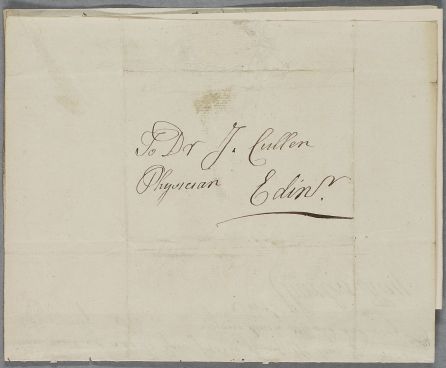 To Dr J. Cullen
Physician Edinr.